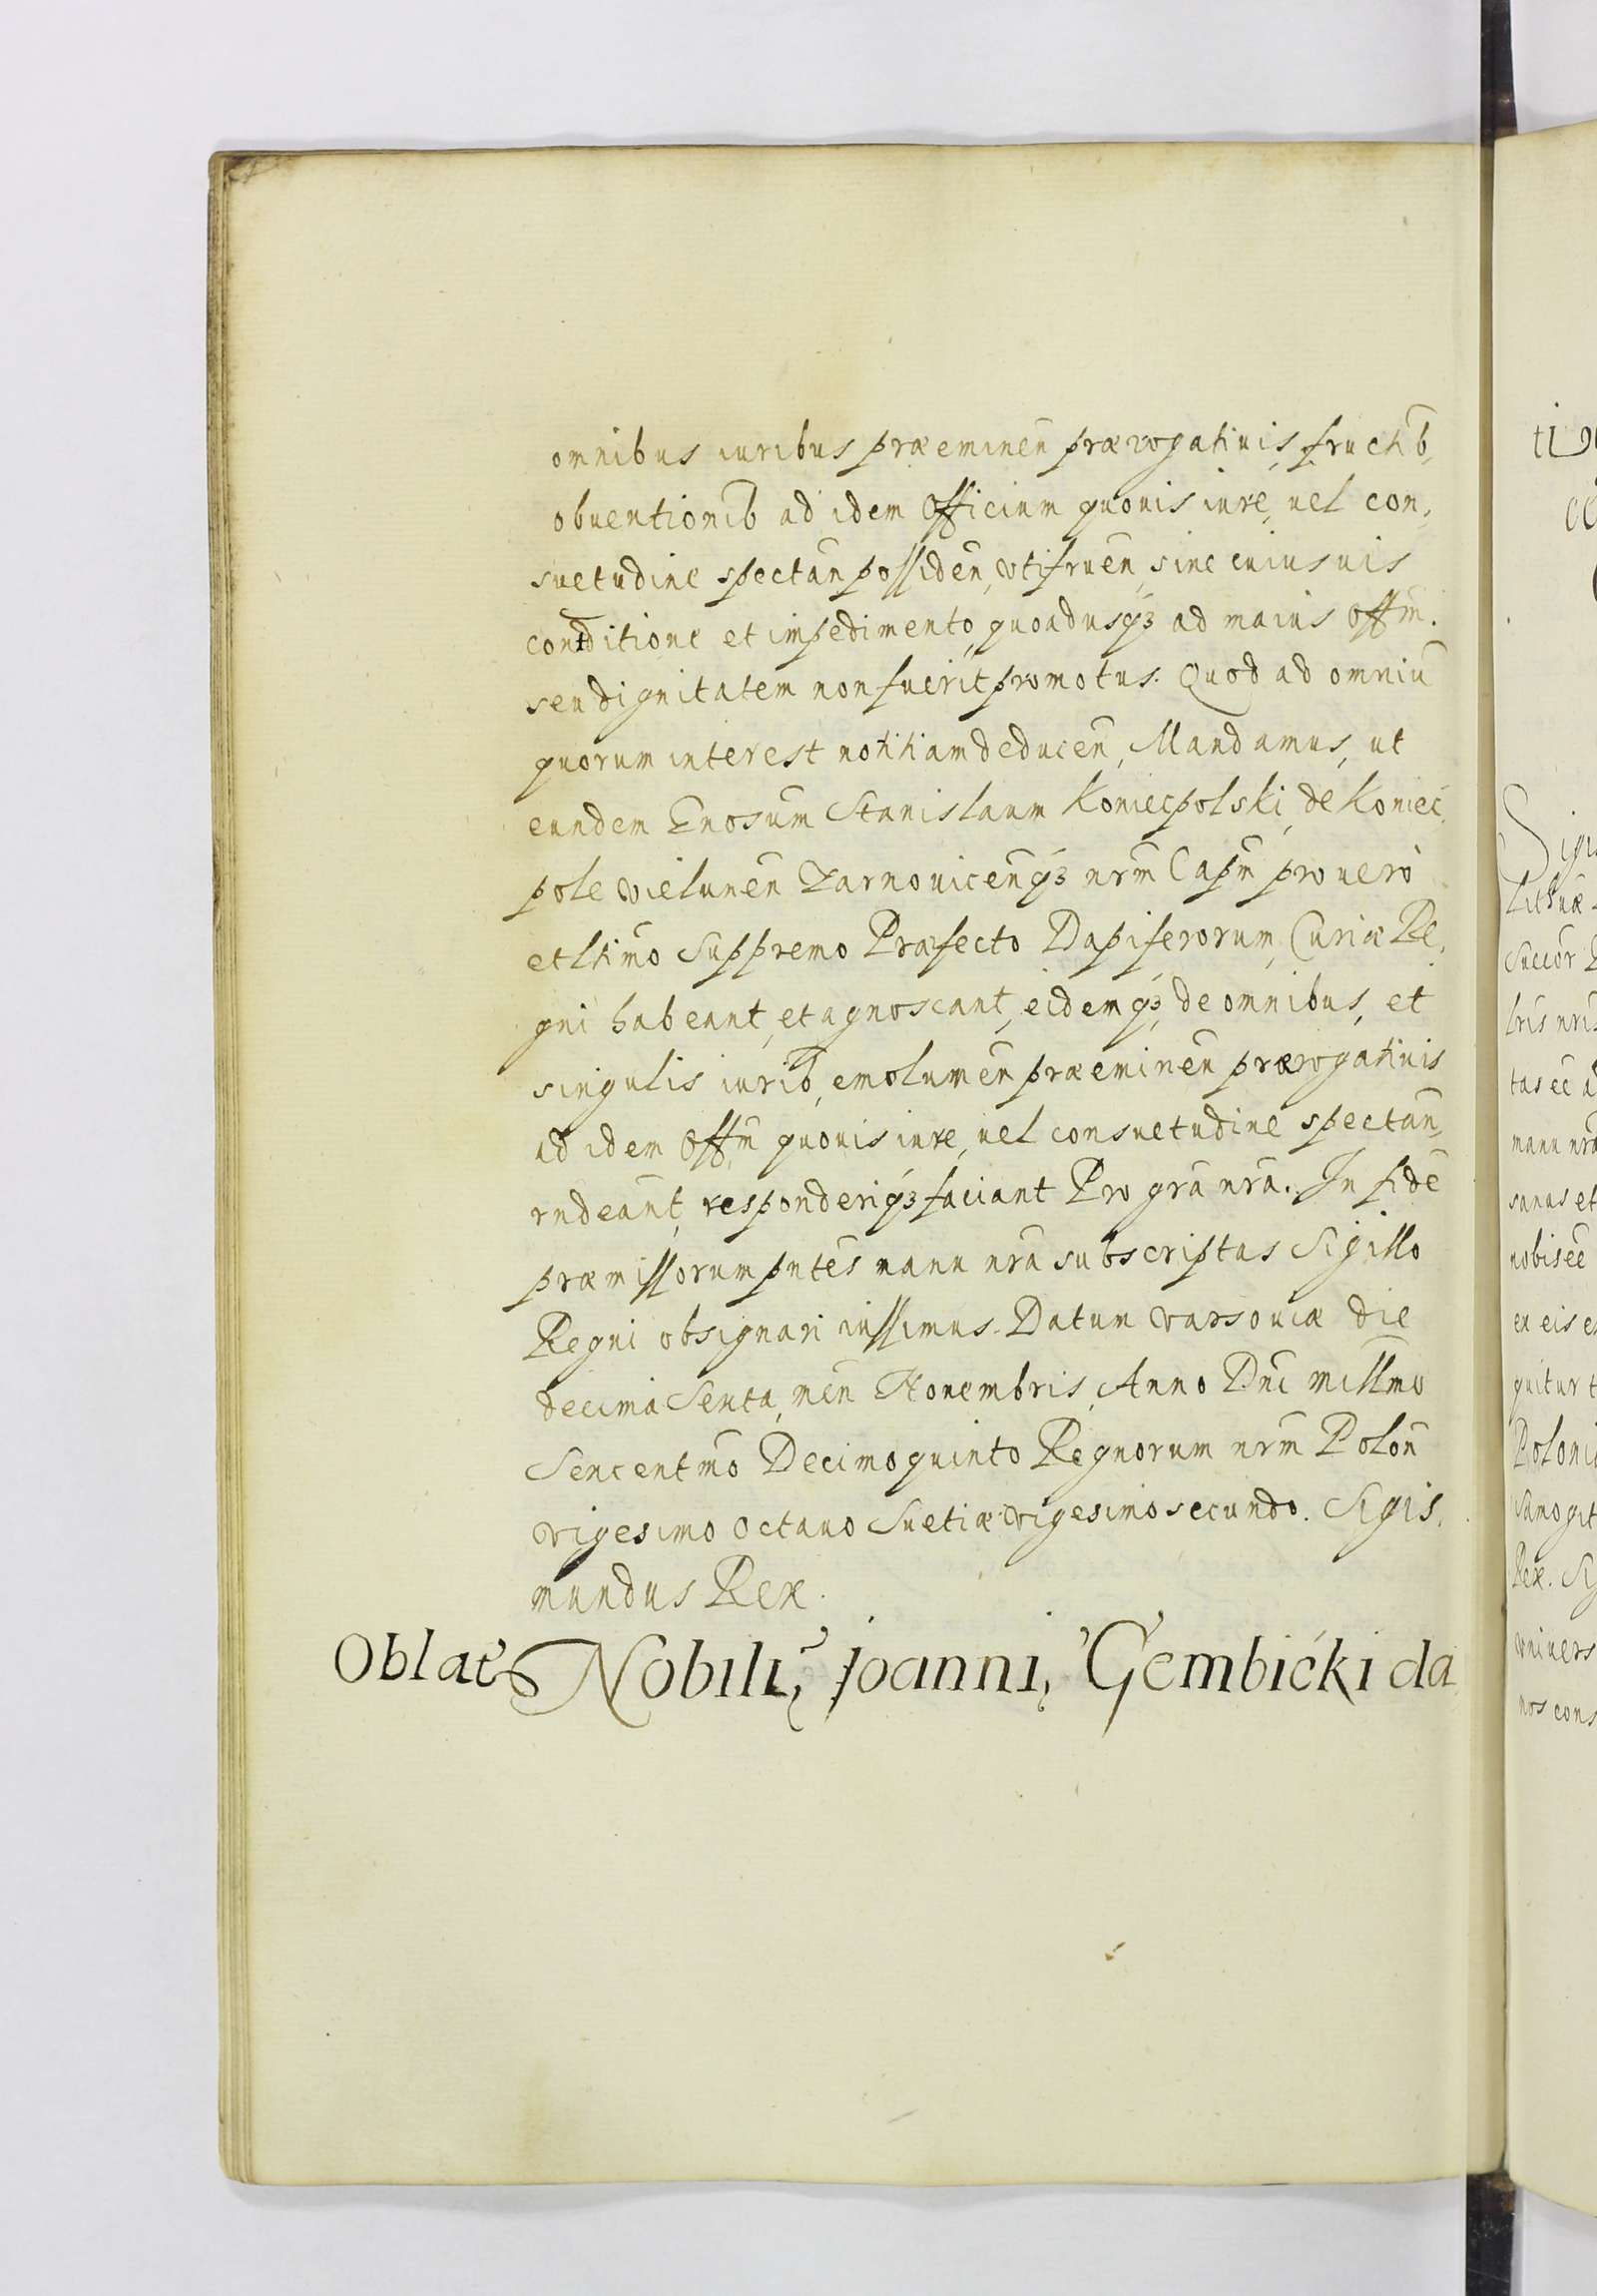 omnibus iuribus præeminen̄ prærogatiuis, fructib̄,
obuentionib̄ ad idem Officium quouis iure, uel con,
suetudine spectan̄ possiden̄, vtifruen̄, sine cuiusuis
conditione et impedimento, quoadusqȝ ad maius Offm̄.
seu dignitatem non fuerit promotus. Quod ad omniū
quorum interest notitiam deducen̄, Mandamus, ut
eundem Gnosum̄ Stanislaum Koniecpolski, de Koniec,
pole Vielunen̄ Zarnouicen̄qȝ nrm̄ Capn̄ pro uero
et ltimo̅ Suppremo Præfecto Dapiferorum, Curiæ Re,
gni habeant, et agnoscant, eidemqȝ, de omnibus, et
singulis iurib̄, emolumen̄ præeminen̄ prærogatiuis
ad idem Offm̄ quouis iure, uel consuetudine spectan̄,
rndeant̄, responderiqȝ faciant Pro gra̅ nra̅. In fide̅
præmissorum pnte̅s manu nra̅ subscriptas Sigillo
Regni obsignari iussimus. Datum Varsouiæ die
decima Sexta, men̄ Nouembris, Anno Dni̅ millm̄o
Sexcentm̄o Decimoquinto Regnorum nrm̄ Polon̄
Vigesimo octauo Suetiæ Vigesimosecundo. Sigis,
mundus Rex.
Oblat̄ Nobili, Joanni, Gembićki da